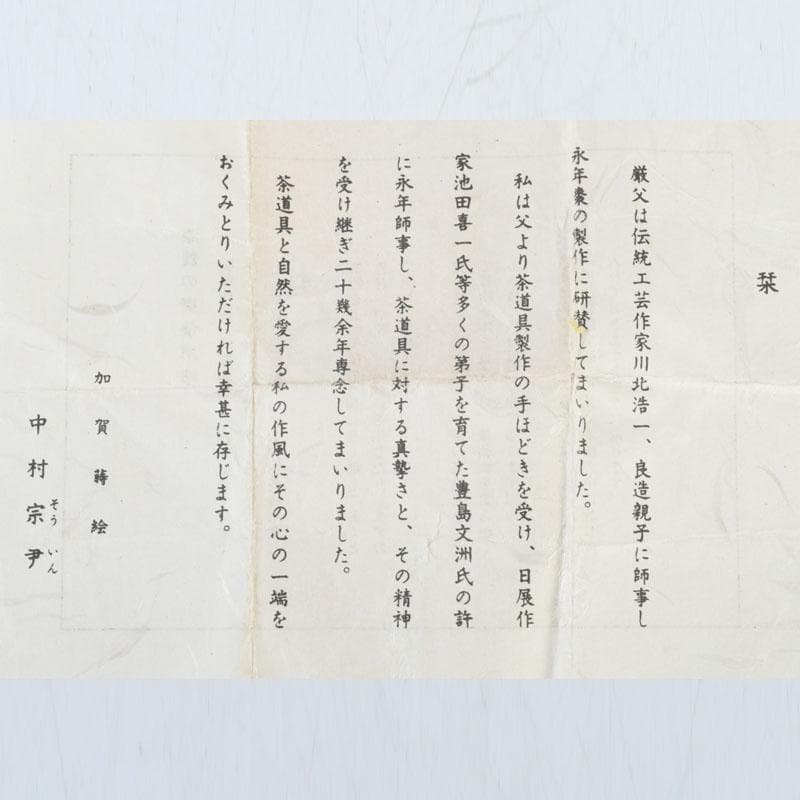 栞
厳父は伝統工芸作家川北浩一、良造親子に師事し
永年棗の製作に研賛してまいりました。
私は父より茶道具製作の手ほどきを受け、日展作
家池田喜一氏等多くの第子を育てた豊島文洲氏の許
に永年師事し、茶道具に対する真摯さと、その精神
を受け継ぎ二十幾余年専念してまいりました。
茶道具と自然を愛する私の作風にその心の一端を
おくみとりいただければ幸甚に存じます。
加賀蒔絵
中村宗尹
そういん